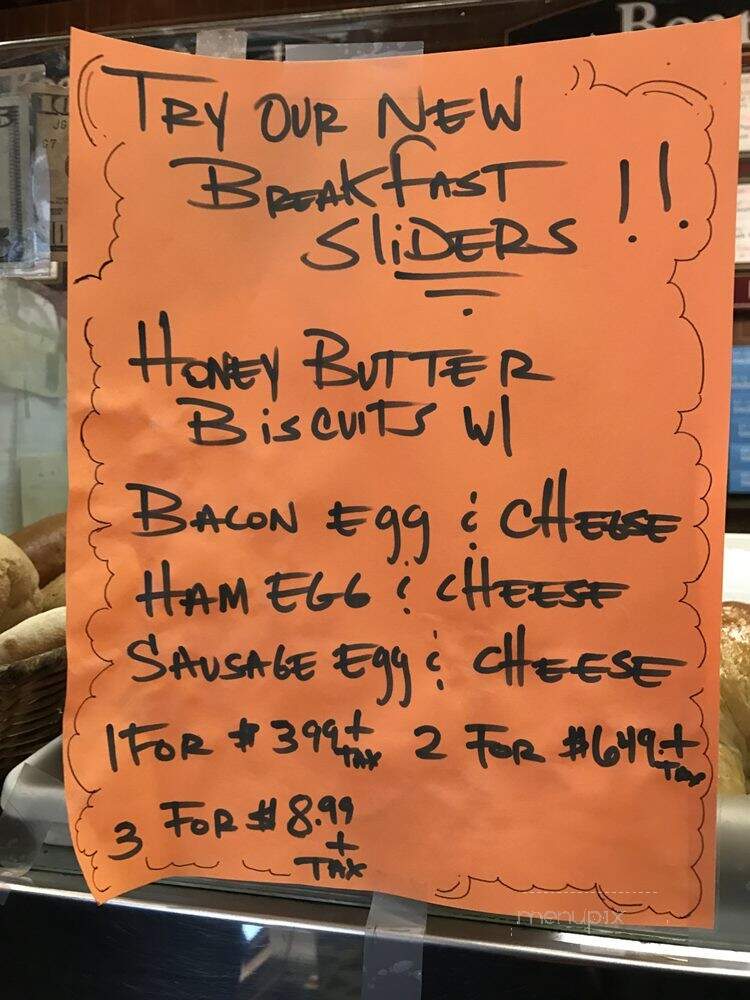 TRY OUR NEW
BREAKfAST !!
SLiDERS
HONEY BUTTER
BiSCUITS W/
BACON Egg & CHEESE
HAM EGG & CHEESE
SAUSAGE Egg & CHEESE
1 FOR $3.99 + TAX 2 FOR $6.49 + TAX
3 FOR $8.99
+
TAX
menupix